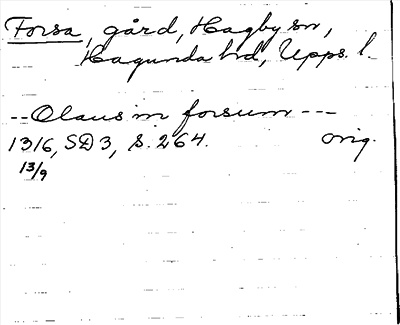 Forsa, gård, Hagby sn,
Hagunda hd, Upps. l.
-- Olaus in forsum ---
1316, SD 3, s. 264. orig.
13/9